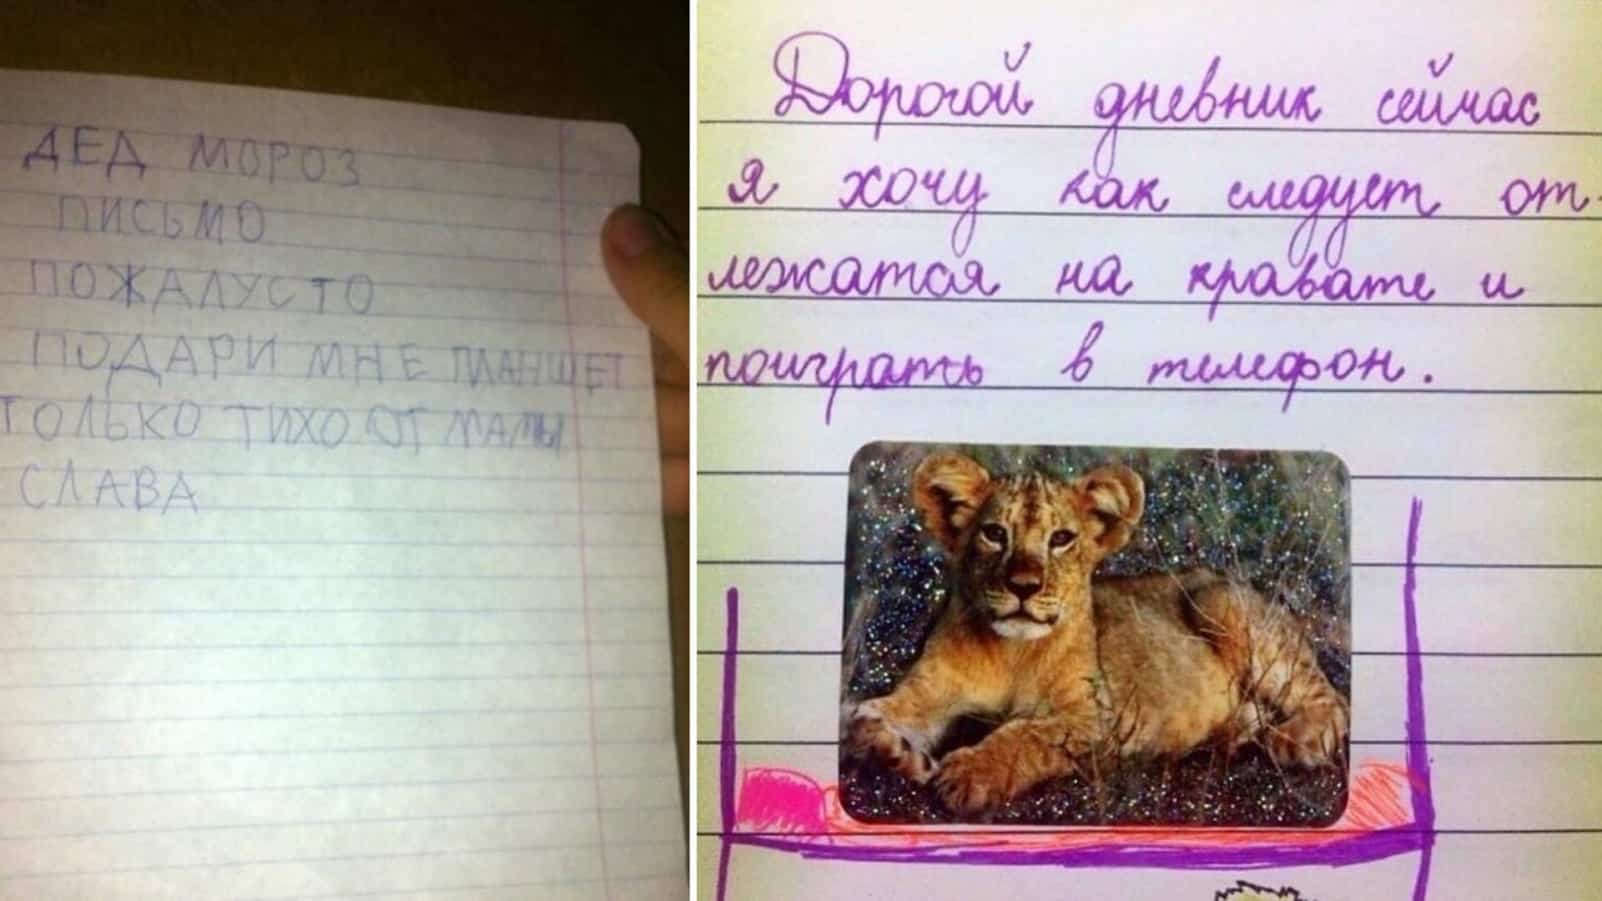 ДЕД МОРОЗ
ПИСЬМО
ПОЖАЛУСТО
ПОДАРИ МНЕ ПЛАНШЕТ
ТОЛЬКО ТИХО ОТ МАМЫ
СЛАВА
Дорогой дневник сейчас
я хочу как следует от-
лежатся на кравате и
поиграть в телефон.